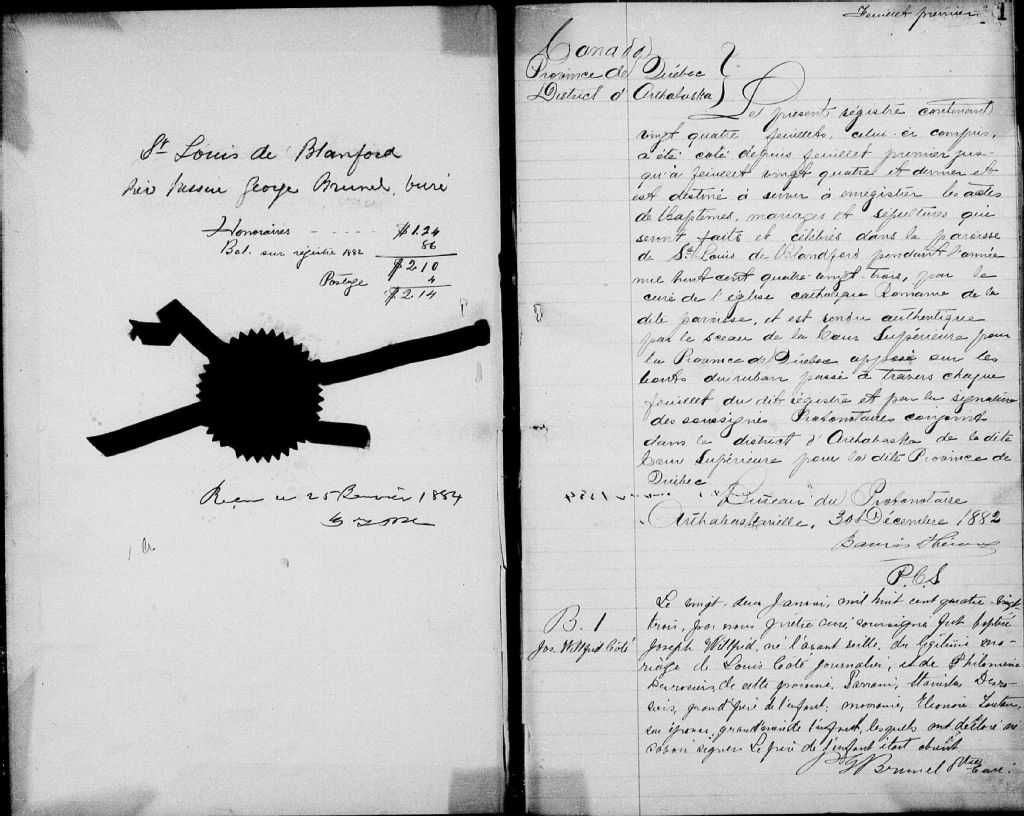 St Louis de Blanford
George Brunel, curé
Honoraires - - - - $1.24
Bal. sur régistre 1882 86
$2 10
Postage 4
$2 14
Reçu le 25 Janvier 1884
Feuillet premier 1
Canada
Province de Québec
District d'Arthabaska
Le présent régistre contenant
vingt quatre feuillets, celui-ci compris,
a été coté depuis feuillet premier jus-
qu'à feuillet vingt quatre et dernier et
est destiné à servir à enrégistrer les actes
de Baptêmes, mariages et sépultures qui
seront faits et célébrés dans la paroisse
de St Louis de Blandford pendant l'année
mil huit cent quatre-vingt-trois, par le
curé de l'église catholique Romaine de la
dite paroisse, et est rendu authentique
par le sceau de la Cour Supérieure pour
la Province de Québec apposé sur les
bouts du ruban passé à travers chaque
feuillet du dit régistre et par la signature
des soussignés Protonotaire conjoint
dans le district d'Arthabaska de la dite
Cour Supérieure pour la dite Province de
Québec
Bureau du Protonotaire
Arthabaskaville, 30 Décembre 1882
P.C.S
Le vingt-deux Janvier, mil huit cent quatre-vingt
B. 1
trois, par nous prêtre curé soussigné fut baptisé
Jos. Wilfrid Côté
Joseph Wilfrid, né l'avant veille, du légitime ma-
riage de Louis Coté journalier, et de Philomène
Desrosiers de cette paroisse. Parrain, Stanislas Desro-
siers, grand'père de l'enfant; marraine, Eléonore
son épouse, grand'mère de l'enfant, lesquels ont déclaré ne
savoir signer. Le père de l'enfant était absent
G Brunel Ptre
Curé.